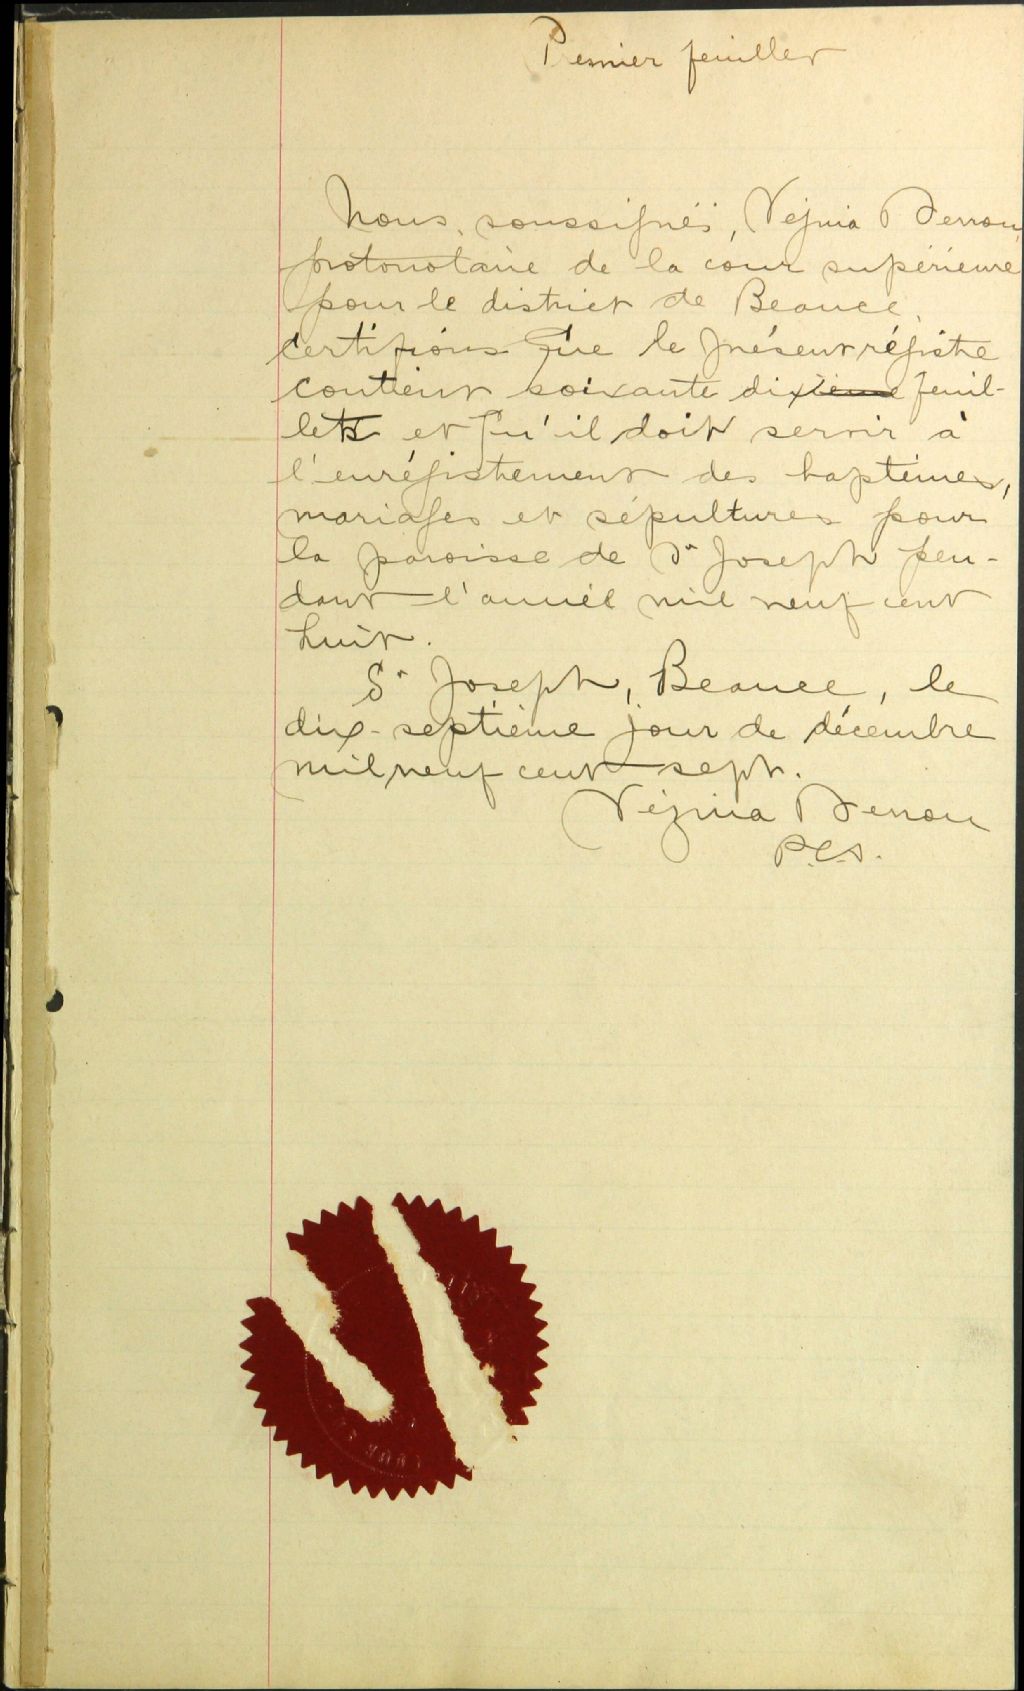 Premier feuillet
Nous, soussignés, Vézina & Perron,
protonotaire de la cour supérieure
pour le district de Beauce,
certifions que le présent régistre
contient soixante dixième feuil-
lets et qu'il doit servir à
l'enrégistrement des baptêmes,
mariages et sépultures pour
la paroisse de St Joseph pen-
dant l'année mil neuf cent
huit.
St Joseph, Beauce, le
dix-septième jour de décembre
mil neuf cent sept.
Vézina
P.C.S.